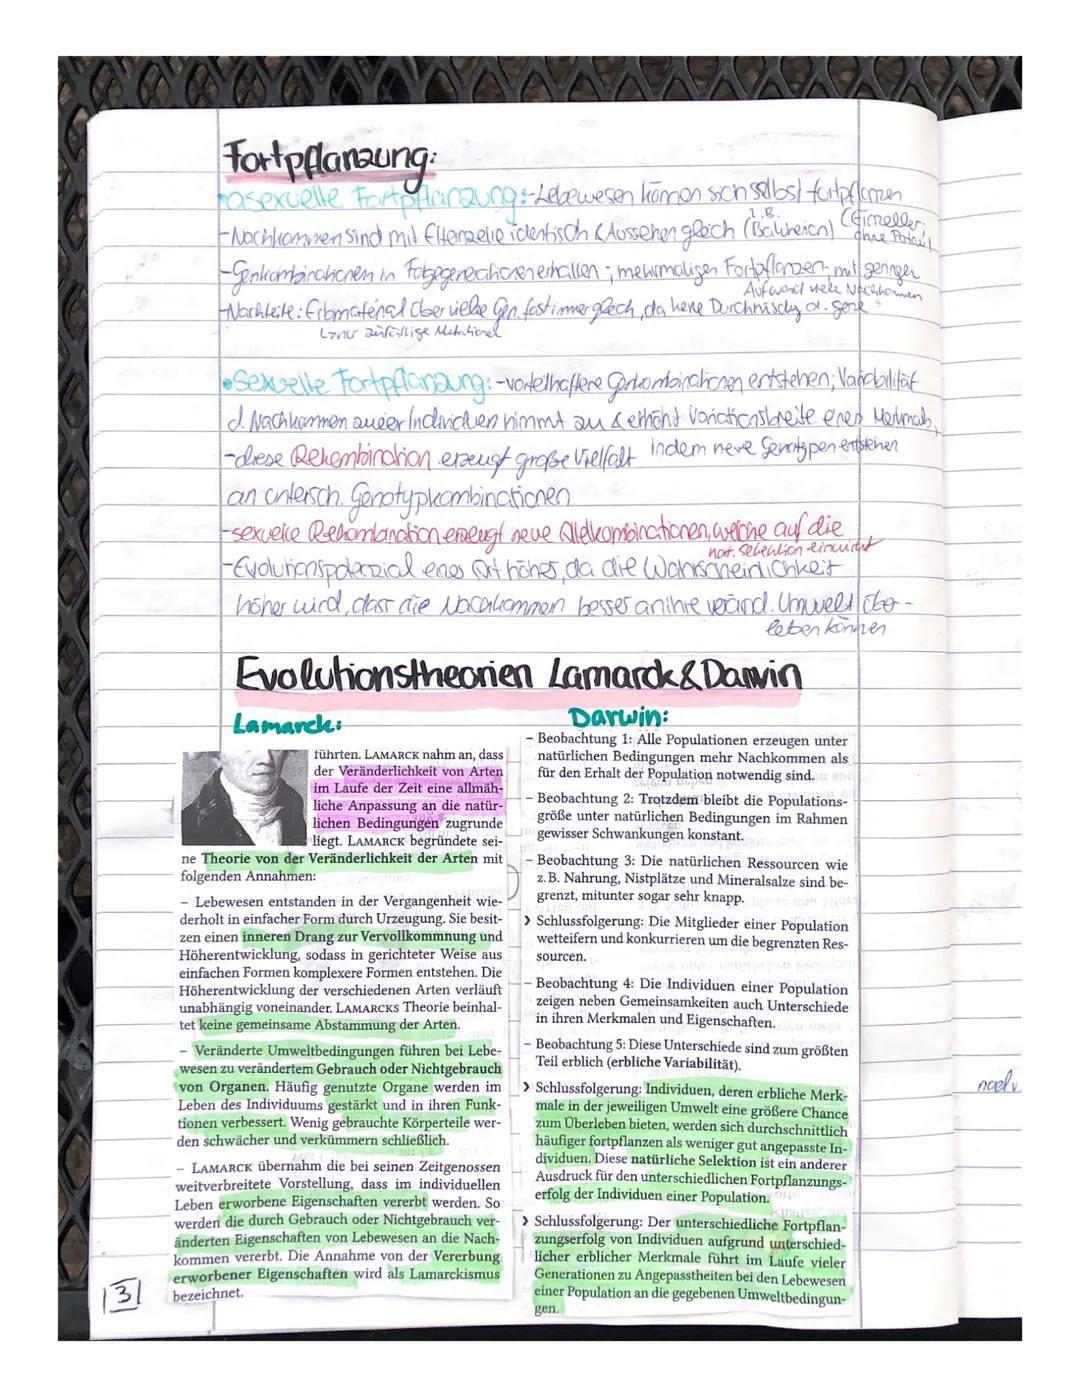 Fortpflanzung:
• asexuelle Fortpflanzung: -Lebewesen können sich selbst fortpflanzen
-Nachkommen sind mit Elternzelle identisch & Aussehen gleich (z.B. Bakterien) (Einzeller, ohne
-Genkombinationen in Folgegenerationen erhalten ; mehrmaliges Fortpflanzen, mit geringer
Aufwand viele Nachkommen
-Nachteile: Erbmaterial über viele Gen. fast immer gleich, da keine Durchmischg d. Gene
↳nur zufällige Mutationen
• Sexuelle Fortpflanzung: -vorteilhaftere Genkombinationen entstehen; Variabilität
d. Nachkommen zweier Individuen nimmt zu & erhöht Variationsbreite eines Merkmals,
-diese Rekombination erzeugt große Vielfalt indem neue Genotypen entstehen
an untersch. Genotypkombinationen
-sexuelle Rekombination erzeugt neue Allelkombinationen, welche auf die
nat. Selektion einwirkt
-Evolutionspotenzial eines Art höher, da die Wahrscheinlichkeit
höher wird, dass die Nachkommen besser an ihre veränd. Umwelt über-
leben können
Evolutionstheorien Lamarck & Darwin
Lamarck:
führten. LAMARCK nahm an, dass
der Veränderlichkeit von Arten
im Laufe der Zeit eine allmäh-
liche Anpassung an die natür-
lichen Bedingungen zugrunde
liegt. LAMARCK begründete sei-
ne Theorie von der Veränderlichkeit der Arten mit
folgenden Annahmen:
– Lebewesen entstanden in der Vergangenheit wie-
derholt in einfacher Form durch Urzeugung. Sie besit-
zen einen inneren Drang zur Vervollkommnung und
Höherentwicklung, sodass in gerichteter Weise aus
einfachen Formen komplexere Formen entstehen. Die
Höherentwicklung der verschiedenen Arten verläuft
unabhängig voneinander. LAMARCKS Theorie beinhal-
tet keine gemeinsame Abstammung der Arten.
– Veränderte Umweltbedingungen führen bei Lebe-
wesen zu verändertem Gebrauch oder Nichtgebrauch
von Organen. Häufig genutzte Organe werden im
Leben des Individuums gestärkt und in ihren Funk-
tionen verbessert. Wenig gebrauchte Körperteile wer-
den schwächer und verkümmern schließlich.
– LAMARCK übernahm die bei seinen Zeitgenossen
weitverbreitete Vorstellung, dass im individuellen
Leben erworbene Eigenschaften vererbt werden. So
werden die durch Gebrauch oder Nichtgebrauch ver-
änderten Eigenschaften von Lebewesen an die Nach-
kommen vererbt. Die Annahme von der Vererbung
erworbener Eigenschaften wird als Lamarckismus
bezeichnet.
3
Darwin:
– Beobachtung 1: Alle Populationen erzeugen unter
natürlichen Bedingungen mehr Nachkommen als
für den Erhalt der Population notwendig sind.
– Beobachtung 2: Trotzdem bleibt die Populations-
größe unter natürlichen Bedingungen im Rahmen
gewisser Schwankungen konstant.
– Beobachtung 3: Die natürlichen Ressourcen wie
z. B. Nahrung, Nistplätze und Mineralsalze sind be-
grenzt, mitunter sogar sehr knapp.
› Schlussfolgerung: Die Mitglieder einer Population
wetteifern und konkurrieren um die begrenzten Res-
sourcen.
– Beobachtung 4: Die Individuen einer Population
zeigen neben Gemeinsamkeiten auch Unterschiede
in ihren Merkmalen und Eigenschaften.
– Beobachtung 5: Diese Unterschiede sind zum größten
Teil erblich (erbliche Variabilität).
› Schlussfolgerung: Individuen, deren erbliche Merk-
male in der jeweiligen Umwelt eine größere Chance
zum Überleben bieten, werden sich durchschnittlich
häufiger fortpflanzen als weniger gut angepasste In-
dividuen. Diese natürliche Selektion ist ein anderer
Ausdruck für den unterschiedlichen Fortpflanzungs-
erfolg der Individuen einer Population.
› Schlussfolgerung: Der unterschiedliche Fortpflan-
zungserfolg von Individuen aufgrund unterschied-
licher erblicher Merkmale führt im Laufe vieler
Generationen zu Angepasstheiten bei den Lebewesen
einer Population an die gegebenen Umweltbedingun-
gen.